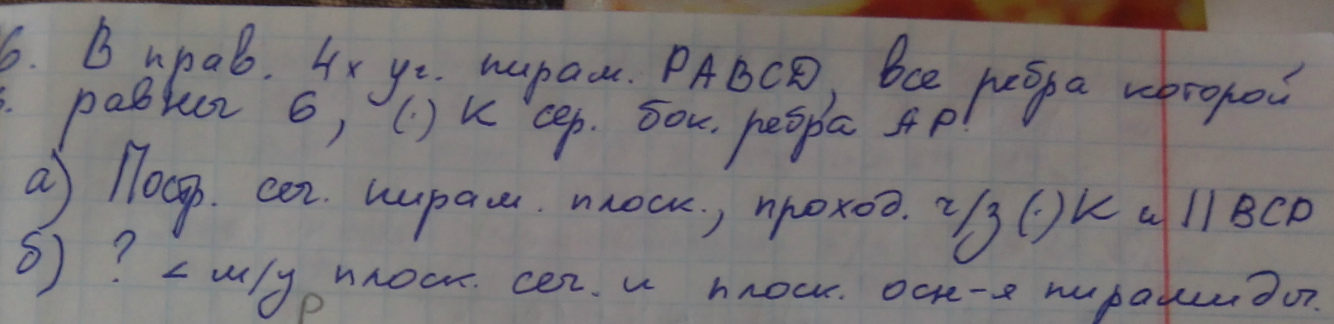 6. В прав. 4х уг. пирам. PABCD, все ребра которой
равны 6, (·) K сер. бок. ребра AP.
а) Постр. сеч. пирам. плоск., проход. ч/з (·) K и || BCP
б) ? ∠ м/у плоск. сеч. и плоск. осн-я пирамиды.
P